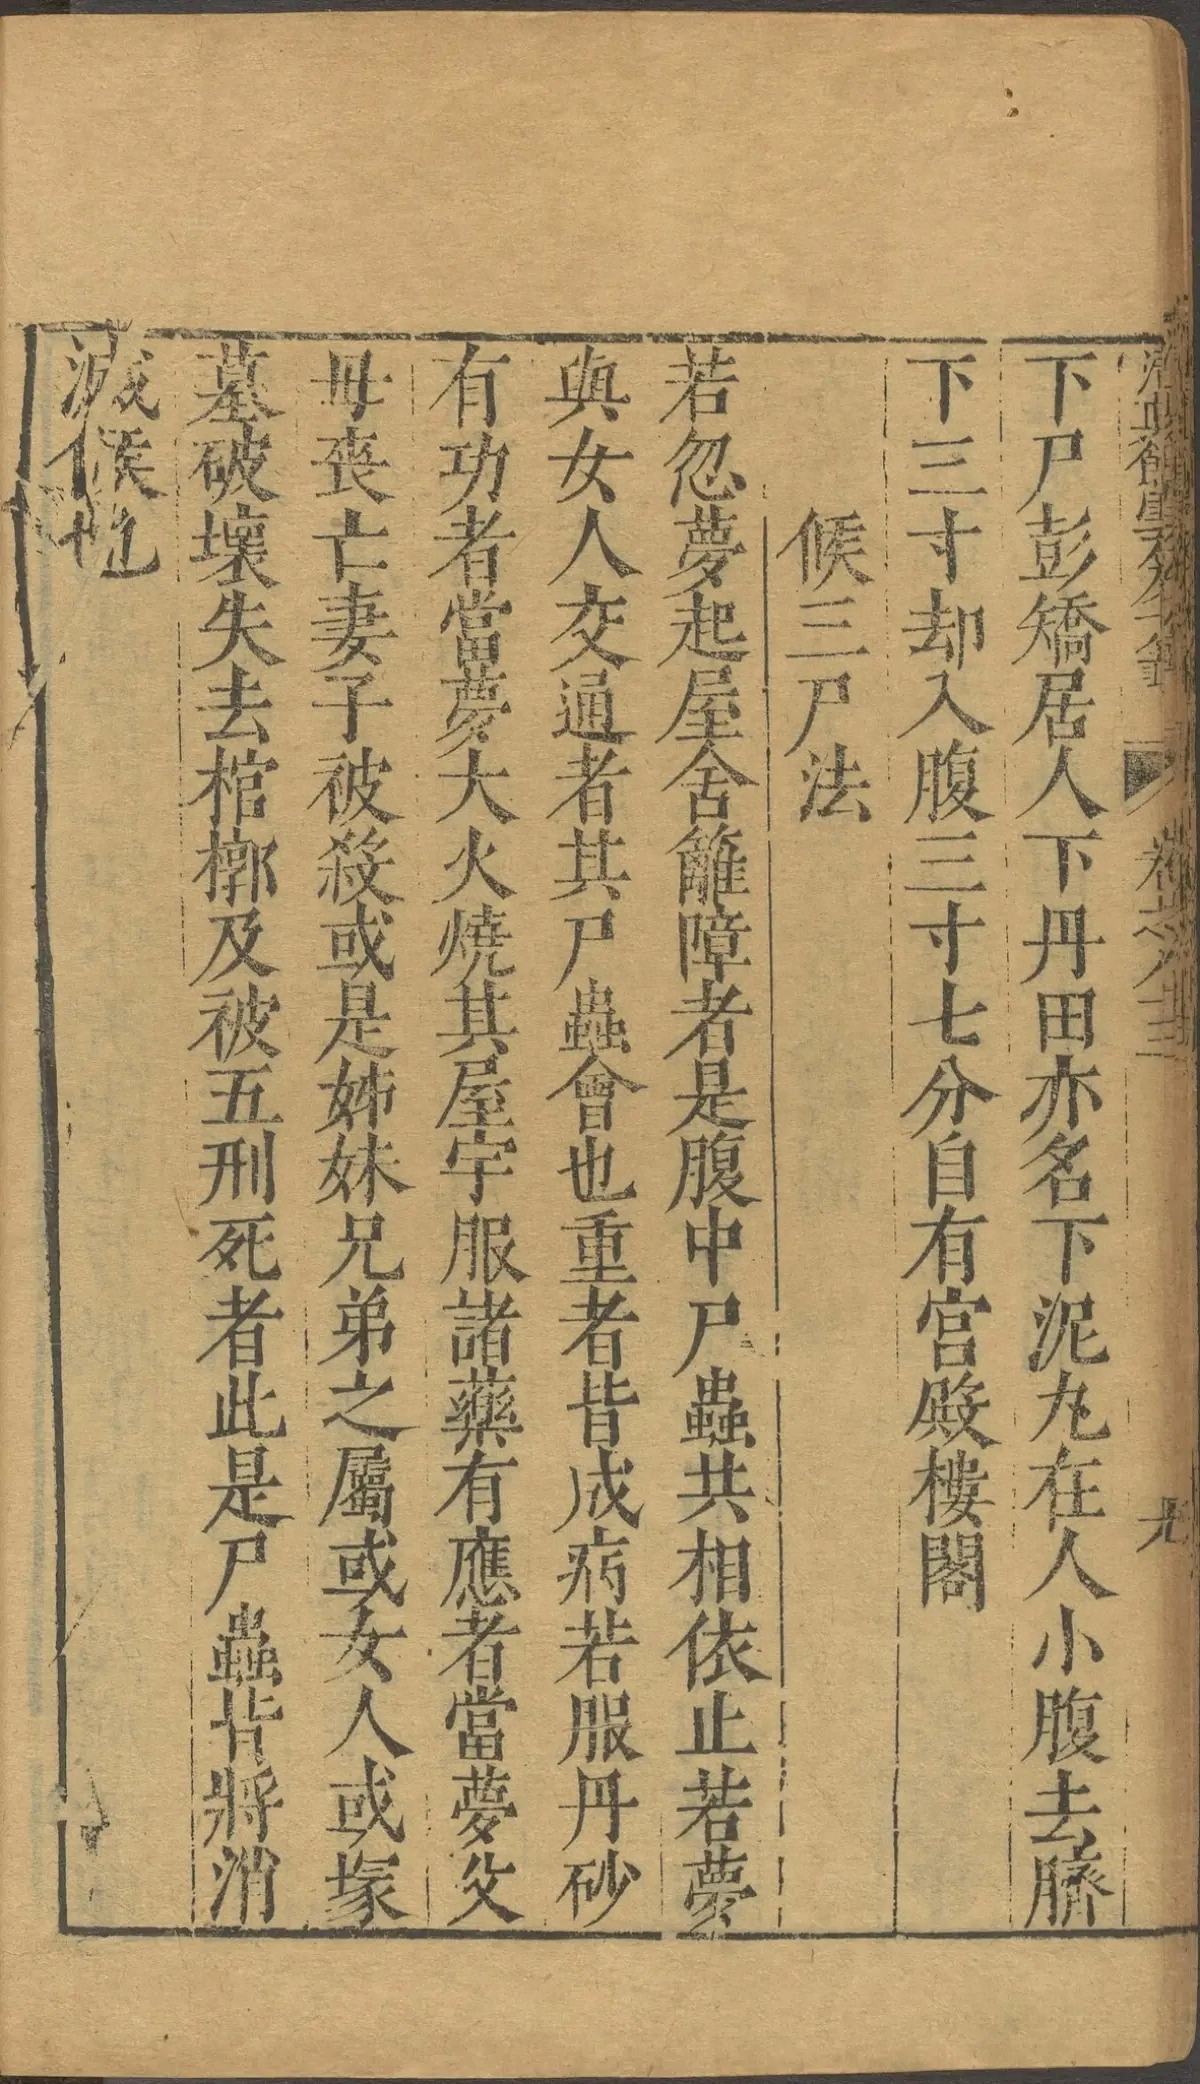 卷之八十三
九
下尸彭矯居人下丹田亦名下泥丸在人小腹去臍
下三寸却入腹三寸七分自有宮殿樓閣
候三尸法
若忽夢起屋舍籬障者是腹中尸蟲共相依止若夢
與女人交通者其尸蟲會也重者皆成病若服丹砂
有功者當夢大火燒其屋宇服諸藥有應者當夢父
母喪亡妻子被殺或是姊妹兄弟之屬或女人或塚
墓破壞失去棺槨及被五刑死者此是尸蟲皆將消
滅候也